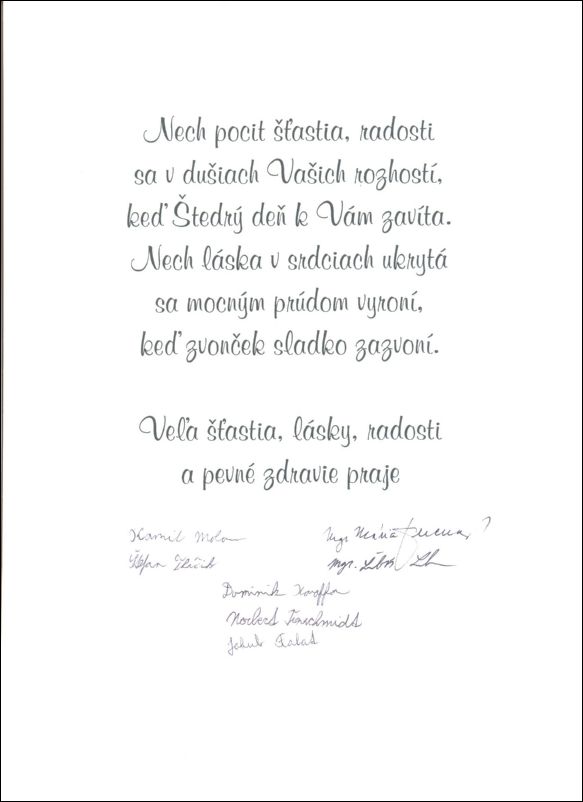 Nech pocit šťastia, radosti
sa v dušiach Vašich rozhostí,
keď Štedrý deň k Vám zavíta.
Nech láska v srdciach ukrytá
sa mocným prúdom vyroní,
keď zvonček sladko zazvoní.
Veľa šťastia, lásky, radosti
a pevné zdravie praje
Kamil
Mgr.
Štefan
Mgr.
Dominik
Norbert
Jakub